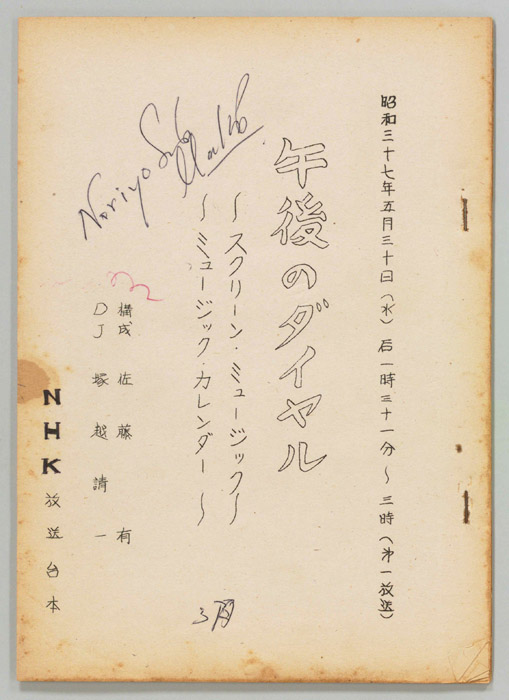 昭和三十七年五月三十日(水)后一時三十一分~三時(第一放送)
午後のダイヤル
~スクリーン・ミュージック~
~ミュージック・カレンダー~
構成 佐藤 有
DJ 塚越請一
NHK放送台本
Noriyo
3月